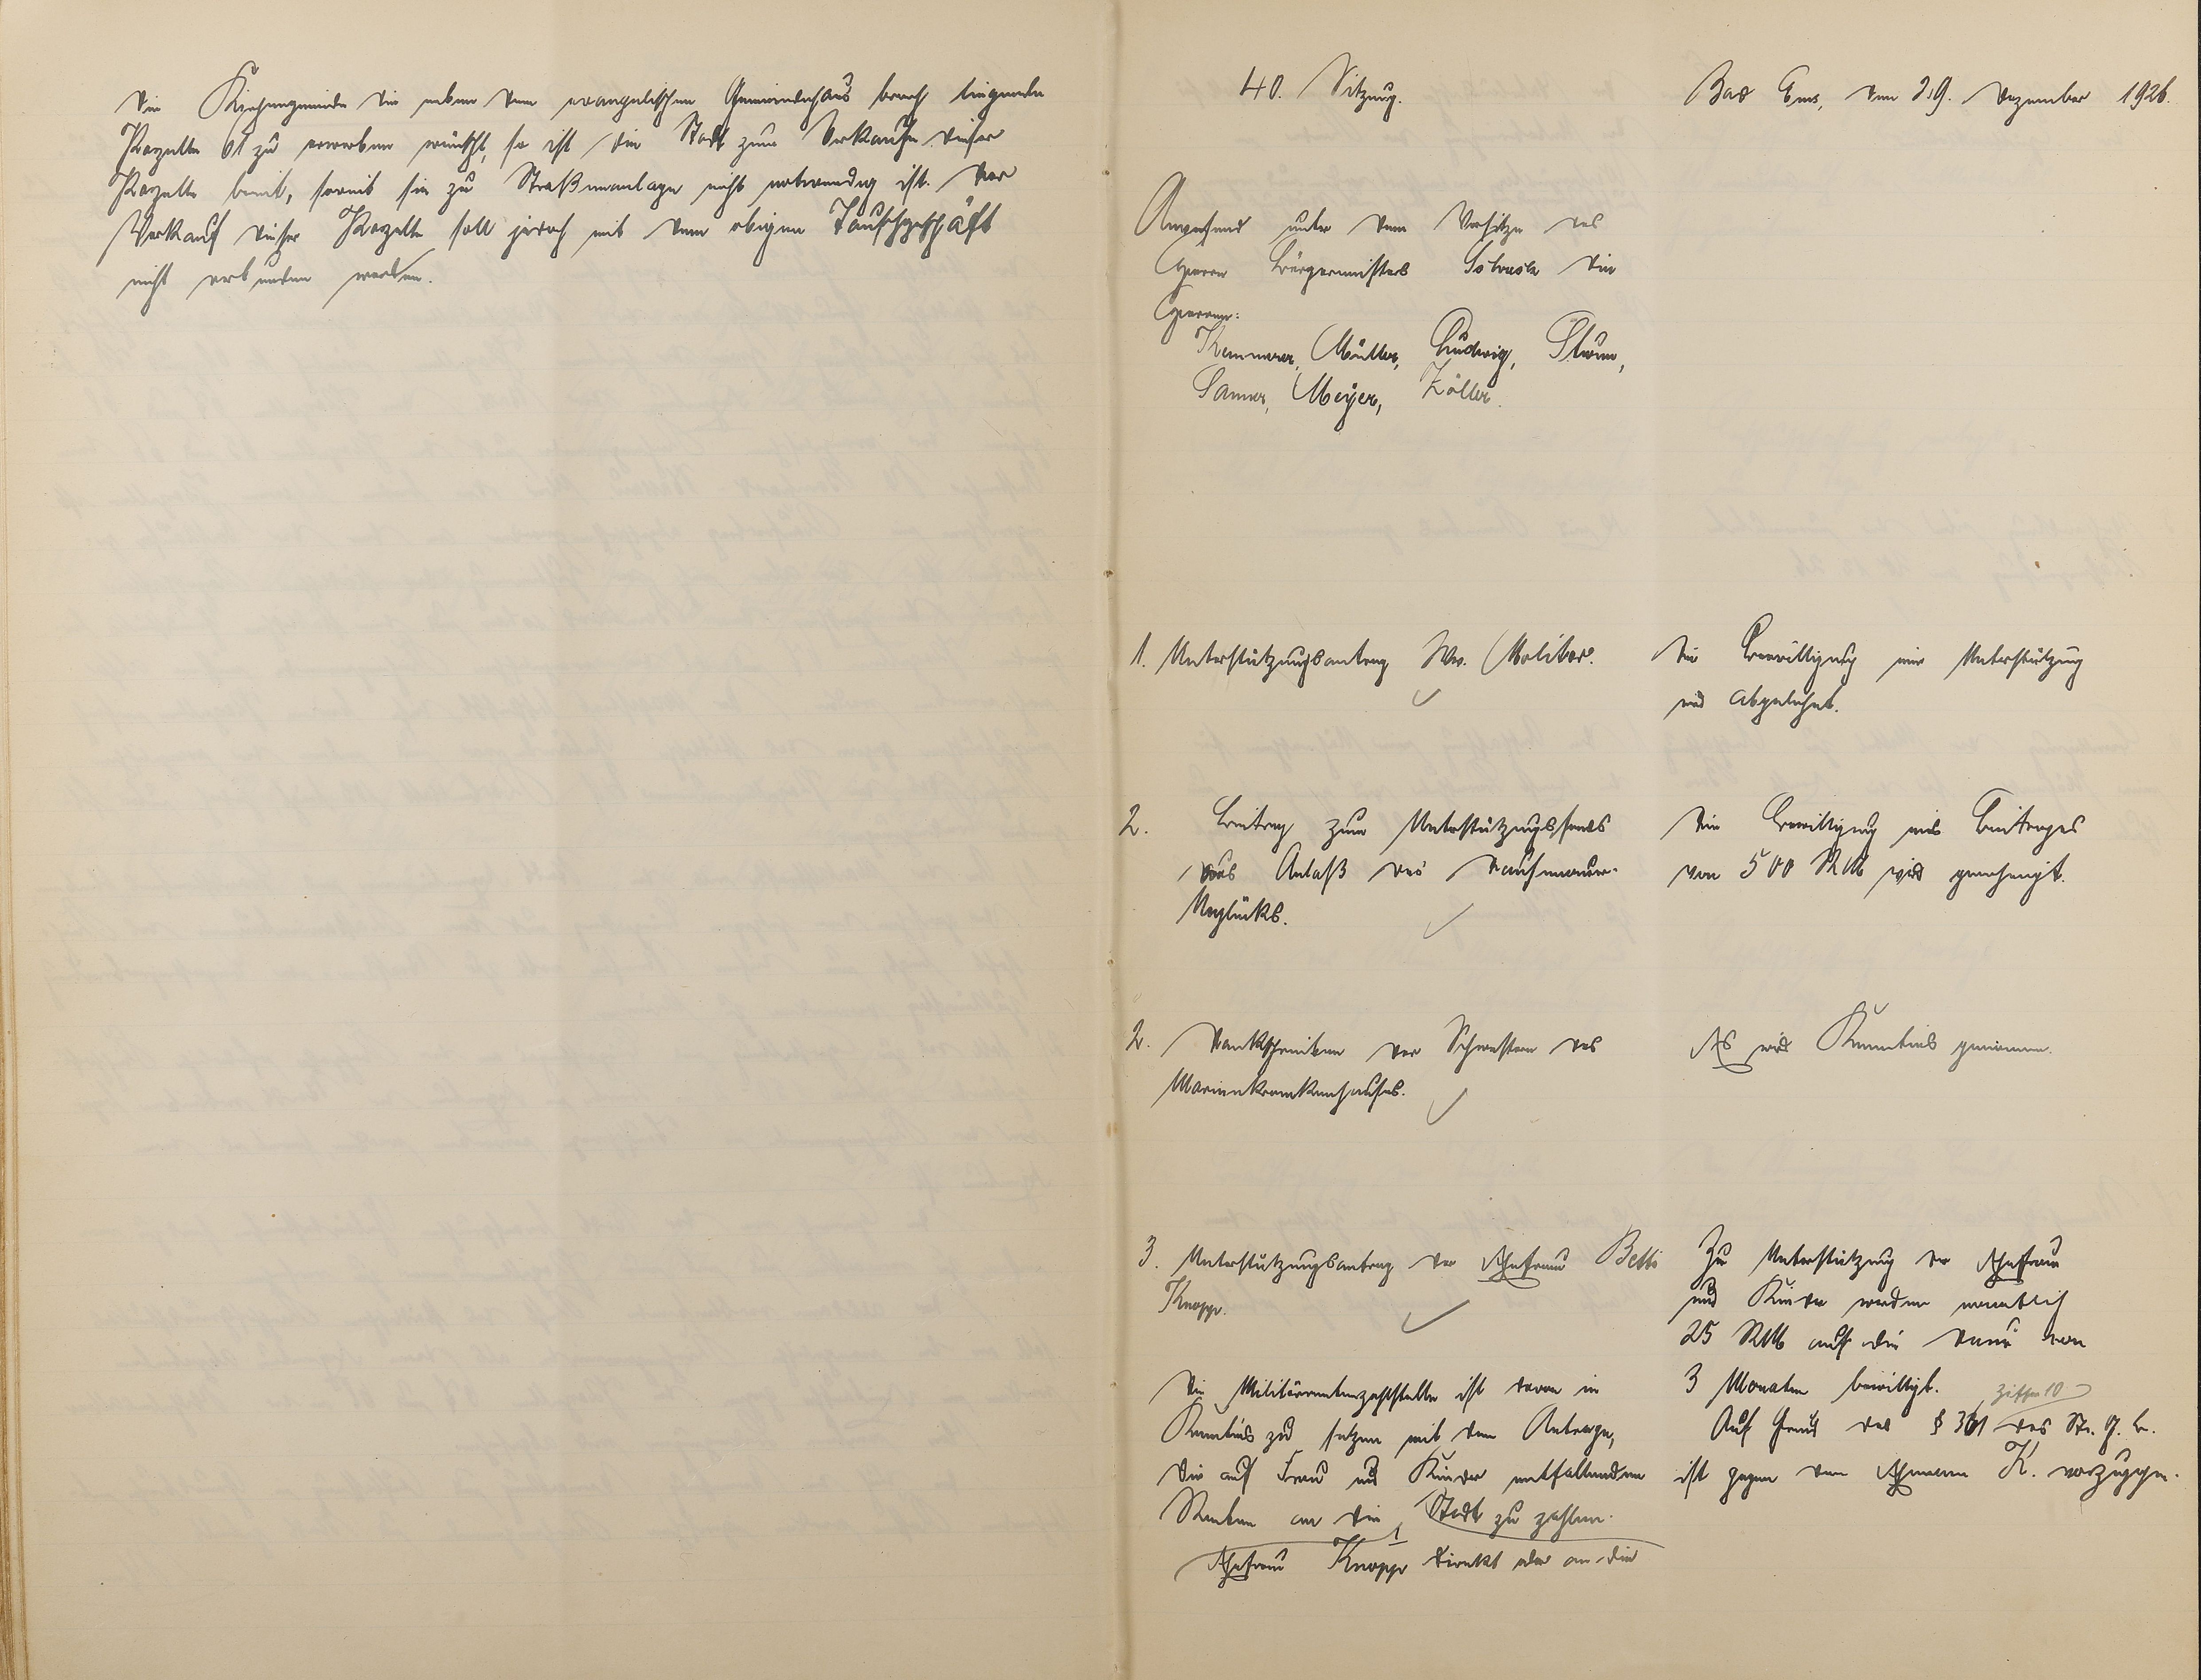 die Kirchengemeinde die neben dem evangelischen Gemeindehaus brach liegende
Parzelle 61 zu erwerben wünscht, so ist die Stadt zum Verkaufe dieser
Parzelle bereit, soweit sie zu Straßenanlage nicht notwendig ist. Der
Verkauf dieser Parzelle soll jedoch mit dem obigen Tauschgeschäft
nicht verbunden werden.
40. Sitzung.
Bad Ems, den 29. Dezember 1926.
Anwesend unter dem Vorsitze des
Herrn Bürgermeisters die
Herren:
Kemmerer, Müller, Ludwig, Sturm,
Sanner, Meyer, Zöller.
1. Unterstützungsantrag Ww. Molitor.
Die Bewilligung einer Unterstützung
wird abgelehnt.
2. Beitrag zum Unterstützungsfonds
aus Anlaß des
Unglücks.
Die Bewilligung eines Beitrages
von 500 RM wird genehmigt.
2. Dankschreiben der Schwestern des
Marienkrankenhauses.
Es wird Kenntnis genommen.
3. Unterstützungsantrag der Ehefrau Betti
Knopp.
Die Militärrentenzahlstelle ist davon in
Kenntnis zu setzen mit dem Antrage,
die auf Frau und Kinder entfallenden
Renten an die Stadt zu zahlen.
Ehefrau Knopp direkt oder an die
Zur Unterstützung der Ehefrau
und Kinder werden monatlich
25 RM auf die Dauer von
3 Monaten bewilligt.
Ziffer 10
Auf Grund des § 361 des Str. G. B.
ist gegen den Ehemann K. vorzugehen.